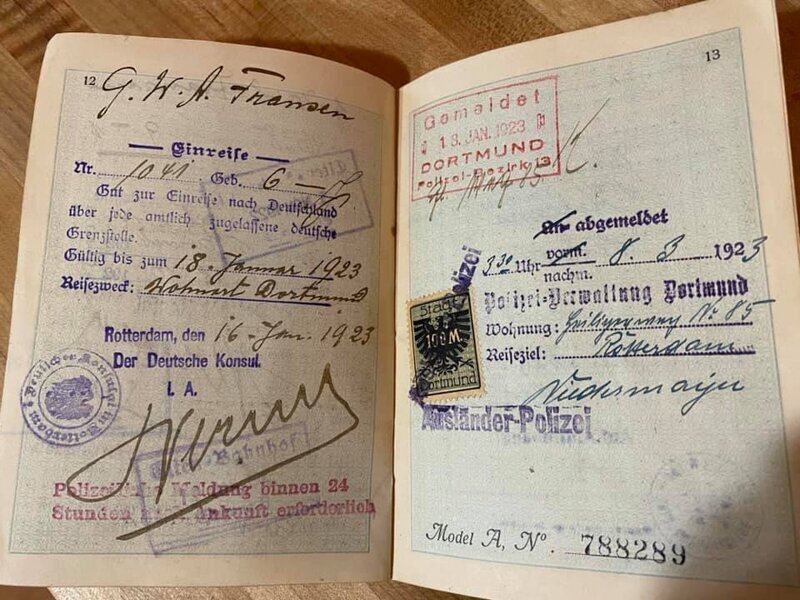 12
G. W. A. Fransen
Einreise
Nr. 1041 Geb. 6
Gut zur Einreise nach Deutschland
über jede amtlich zugelassene deutsche
Grenzstelle.
Gültig bis zum 18. Januar 1923
Reisezweck: Wohnort Dortmund
Rotterdam, den 16 Jan. 1923
Der Deutsche Konsul.
I. A.
Deutsches Konsulat in Rotterdam
Polizeiliche Meldung binnen 24
Stunden nach Ankunft erforderlich
13
Gemeldet
18. JAN. 1923
DORTMUND
Polizei-Bezirk 13
An- abgemeldet
vorm. 8. 3 1923
3 30 Uhr nachm.
Polizei-Verwaltung Dortmund
Wohnung: Heiligerweg No 85
Reiseziel: Rotterdam
Stadt
100 M.
Dortmund
Ausländer-Polizei
Model A, No. 788289